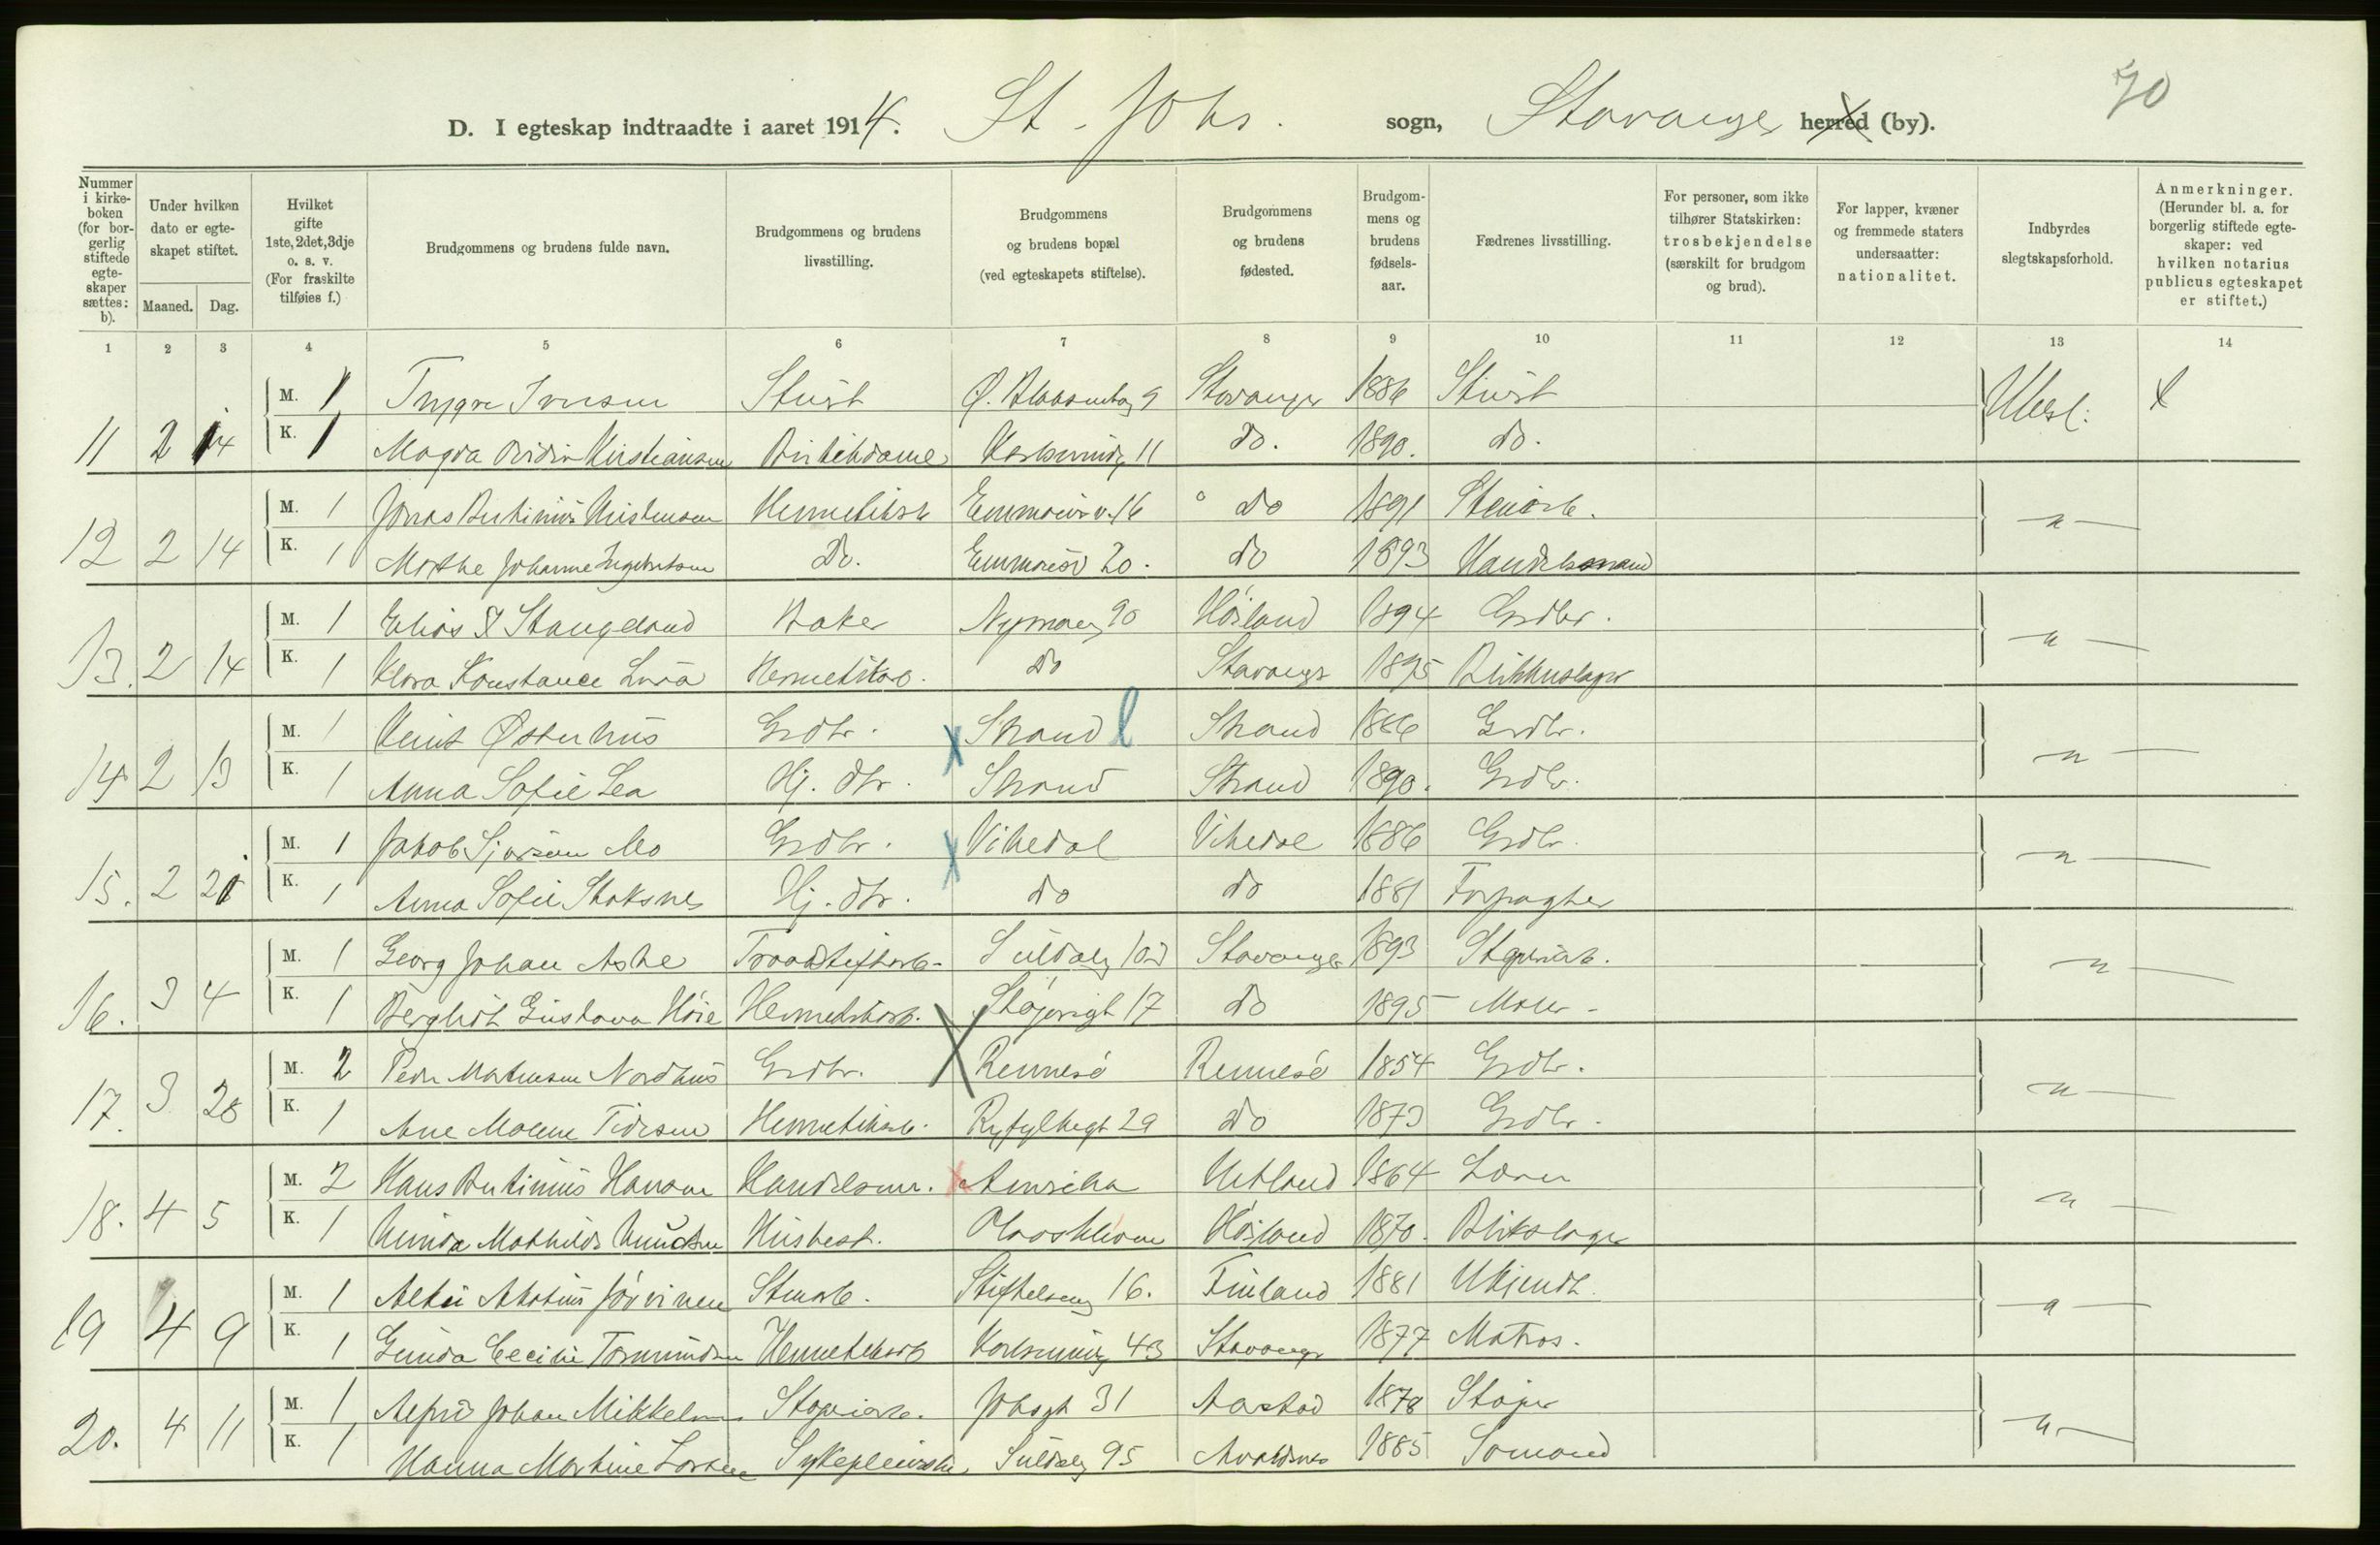 70
D. I egteskap indtraadte i aaret 1914. St. Johs. sogn, Stavanger herred (by).
Nummer i kirkeboken (for borgerlig stiftede egteskaper sættes: b).
Under hvilken dato er egteskapet stiftet.
Maaned. Dag.
Hvilket gifte 1ste, 2det, 3dje o. s. v. (For fraskilte tilføies f.)
Brudgommens og brudens fulde navn.
Brudgommens og brudens livsstilling.
Brudgommens og brudens bopæl (ved egteskapets stiftelse).
Brudgommens og brudens fødested.
Brudgommens og brudens fødselsaar.
Fædrenes livsstilling.
For personer, som ikke tilhører Statskirken: trosbekjendelse (særskilt for brudgom og brud).
For lapper, kvæner og fremmede staters undersaatter: nationalitet.
Indbyrdes slegtskapsforhold.
Anmerkninger. (Herunder bl. a. for borgerlig stiftede egteskaper: ved hvilken notarius publicus egteskapet er stiftet.)
1 2 3 4 5 6 7 8 9 10 11 12 13 14
M. 1 Trygve Iversen Stuert 9 Stavanger 1886 Stuert Ubesl.
11 2 14 K. 1 Magda Kristiansen Butikdame 11 do. 1890. do.
M. 1 Jonas Bertinius Kristensen Hermetikarb Emmausv. 16 do 1891 Stenarb.
12 2 14 K. 1 Marthe Johanne Ingebretsen Do. Emmausv 20. do 1893 Handelsmand
M. 1 Elias Stangeland Baker Nymansv 90 Höiland 1894 Grdbr.
13. 2 14 K. 1 Klara Konstance Lura Hermetikarb. do Stavanger 1895 Blikkenslager
M. 1 Knut Østerhus Grdbr. Strand l Strand 1886 Grdbr.
14 2 13 K. 1 Anna Sofie Lea Hj. dtr. Strand Strand 1890. Grdbr.
M. 1 Jakob Sjursen Mo Grdbr. Vikedal Vikedal 1886 Grdbr.
15. 2 21 K. 1 Anna Sofie Stoksnes Hj. dtr. do do 1881 Forpagter
M. 1 Georg Johan Aske Suldalsg Stavanger 1893
16. 3 4 K. 1 Bergliot Gustava Höie Hermetikarb. 17 do 1895 Maler
M. 2 Peder Mortensen Nordhus Grdbr. Rennesö Rennesö 1854 Grdbr.
17. 3 28 K. 1 Ane Malene Tidesen Hermetikarb. Ryfylkegt 29 do 1873 Grdbr.
M. 2 Hans Bertinius Hansen Handelsm. Amerika Hetland 1864 Lærer
18. 4 5 K. 1 Mathilde Knudsen Husbest. Höiland 1870. Blikslager
M. 1 Järvinen Stenarb. Stiftelsesg 16. Finland 1881 Ukjendt
19 4 9 K. 1 Gunda Cecilie Tormundsen Hermetikarb Karlsminneg 43 Stavanger 1877 Matros.
M. 1 Alfred Johan Mikkelsen Johsgt 31 1878 Støper
20. 4 11 K. 1 Hanna Martine Larsen Sykepleierske Suldalsg 95 Avaldsnes 1885 Sømand